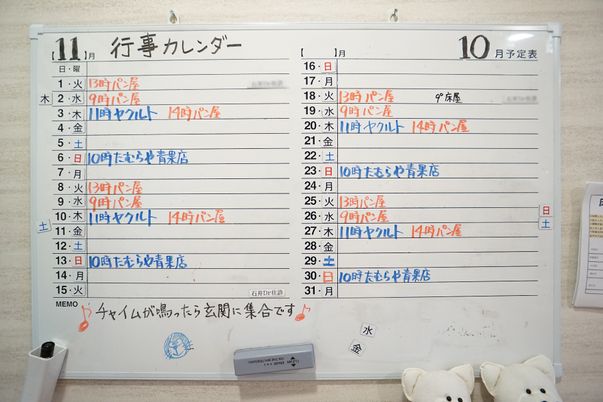 【11】月 行事カレンダー
日・曜
1・火 13時パン屋
木 2・水 9時パン屋
3・木 11時ヤクルト 14時パン屋
4・金
5・土
6・日 10時たむらや青果店
7・月
8・火 13時パン屋
9・水 9時パン屋
土 10・木 11時ヤクルト 14時パン屋
11・金
12・土
13・日 10時たむらや青果店
14・月
15・火 石井Dr往診
【 】月 10月予定表
16・日
17・月
18・火 13時パン屋 9°床屋
19・水 9時パン屋
20・木 11時ヤクルト 14時パン屋
21・金
22・土
23・日 10時たむらや青果店
24・月
25・火 13時パン屋
日 26・水 9時パン屋
土 27・木 11時ヤクルト 14時パン屋
28・金
29・土
30・日 10時たむらや青果店
31・月
MEMO
♪チャイムが鳴ったら玄関に集合です♪
水
金